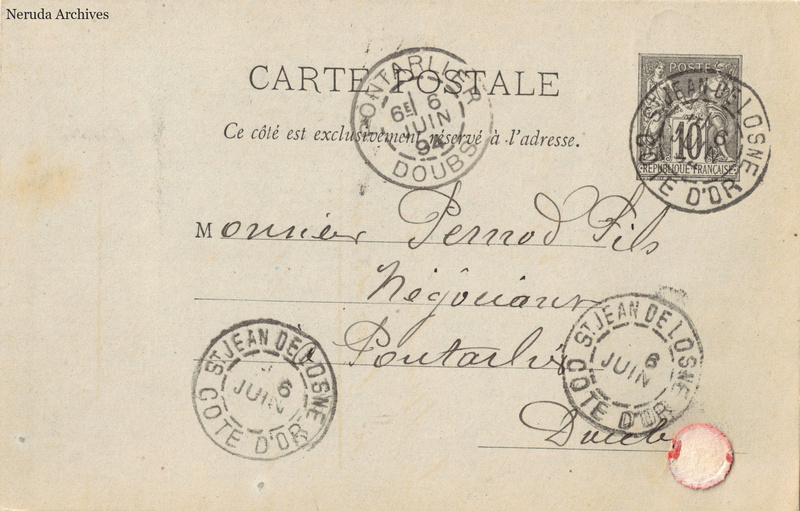 Neruda Archives
CARTE POSTALE
Ce côté est exclusivement réservé à l'adresse.
PONTARLIER
6E 6
JUIN
94
DOUBS
POSTES
10
REPUBLIQUE FRANÇAISE
ST JEAN DE LOSNE
6
COTE D'OR
Monsieur Pernod Fils
Négociant
Pontarlier
Doubs
ST JEAN DE LOSNE
6
JUIN
COTE D'OR
ST JEAN DE LOSNE
6
JUIN
COTE D'OR